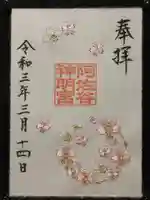 奉拝
阿佐ヶ谷
神明宮
令和三年三月十四日